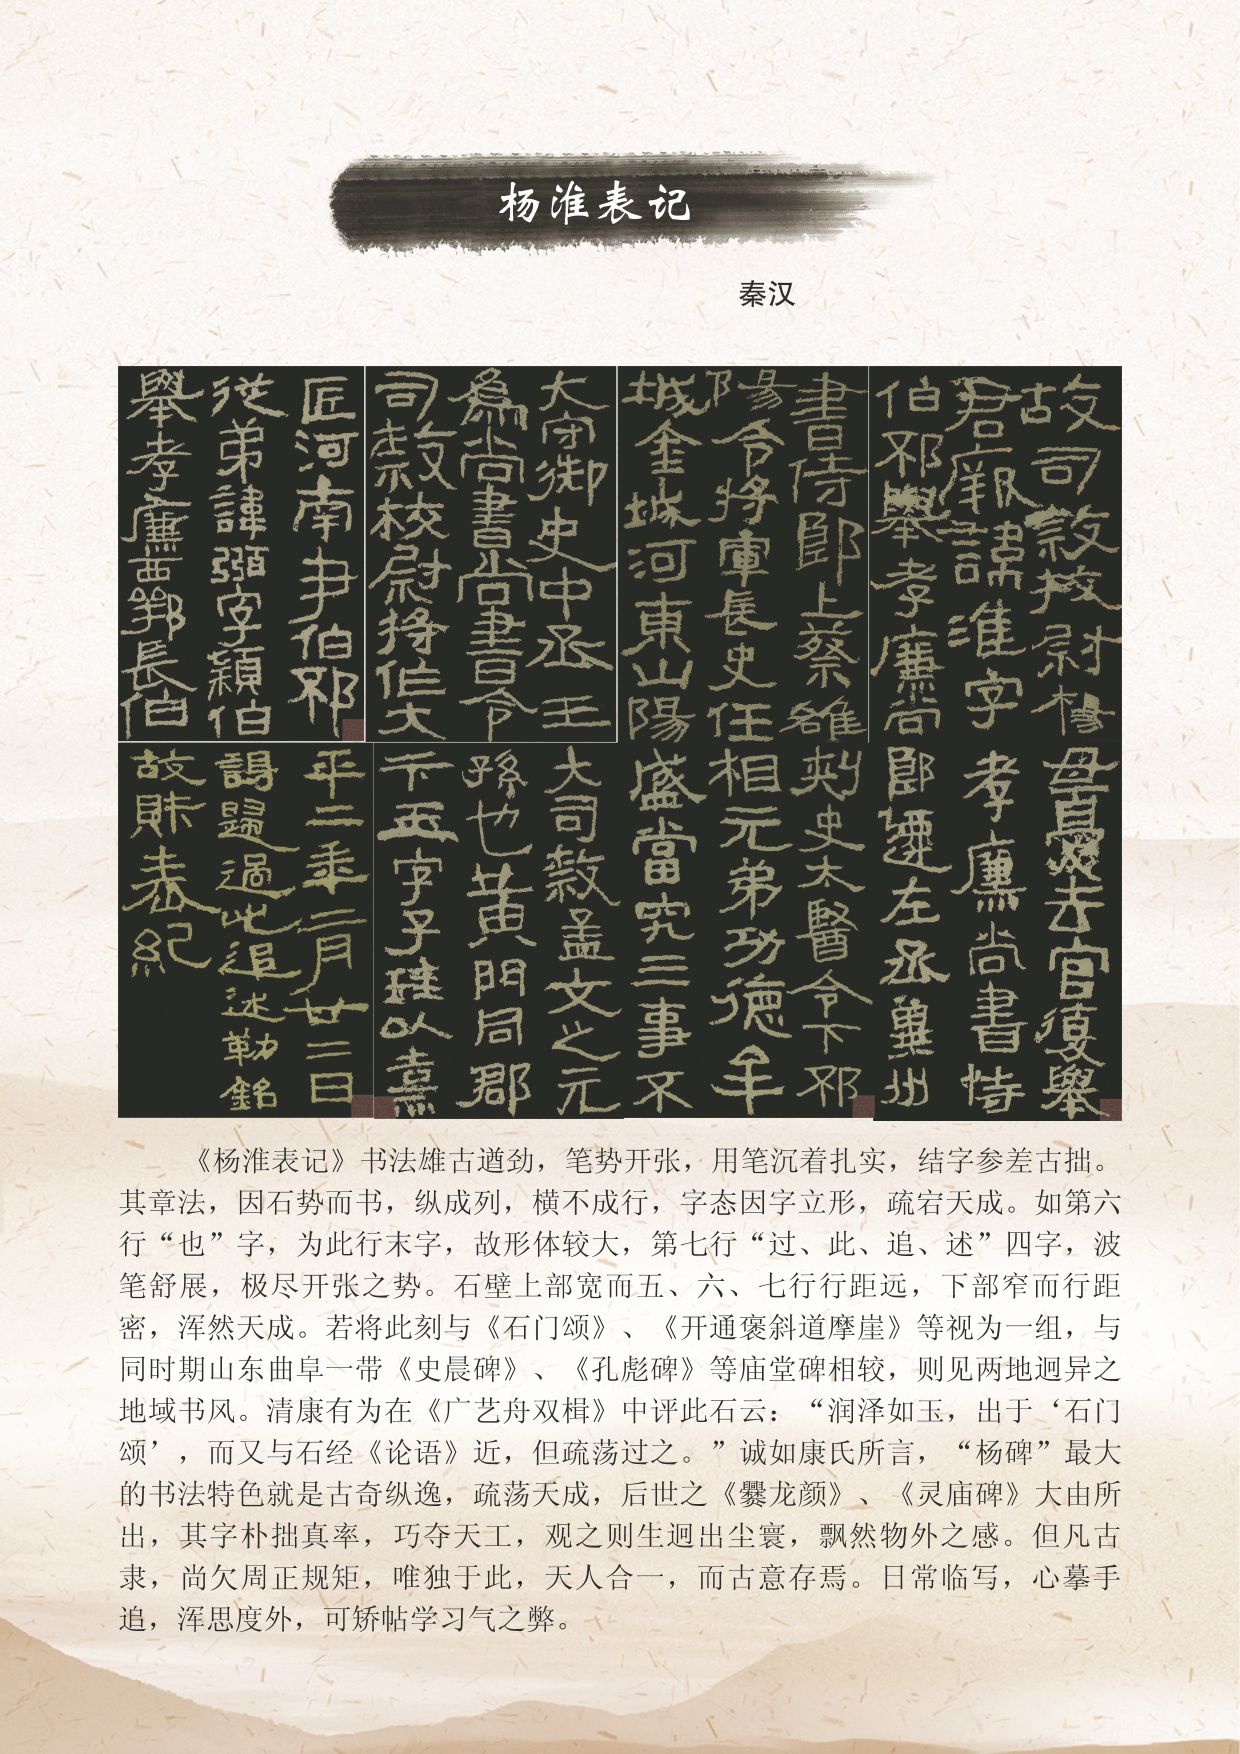 杨淮表记
秦汉
故司隸校尉楊
君厥諱淮字
伯邳舉孝廉尚
書侍郎上蔡雒
陽令將軍長史任
城金城河東山陽
大守御史中丞三
為尚書尚書令
司隸校尉將作大
匠河南尹伯邳
從弟諱弼字穎伯
舉孝廉西鄂長伯
母憂去官復舉
孝廉尚書侍
郎遷左丞冀州
刺史太醫令下邳
相元弟功德牟
盛當究三事不
大司隸孟文之元
孫也黃門同郡
卞玉字子珪以熹
平二年二月廿二日
謁歸過此追述勒銘
故財表紀
《杨淮表记》书法雄古遒劲，笔势开张，用笔沉着扎实，结字参差古拙。
其章法，因石势而书，纵成列，横不成行，字态因字立形，疏宕天成。如第六
行“也”字，为此行末字，故形体较大，第七行“过、此、追、述”四字，波
笔舒展，极尽开张之势。石壁上部宽而五、六、七行行距远，下部窄而行距
密，浑然天成。若将此刻与《石门颂》、《开通褒斜道摩崖》等视为一组，与
同时期山东曲阜一带《史晨碑》、《孔彪碑》等庙堂碑相较，则见两地迥异之
地域书风。清康有为在《广艺舟双楫》中评此石云：“润泽如玉，出于‘石门
颂’，而又与石经《论语》近，但疏荡过之。”诚如康氏所言，“杨碑”最大
的书法特色就是古奇纵逸，疏荡天成，后世之《爨龙颜》、《灵庙碑》大由所
出，其字朴拙真率，巧夺天工，观之则生迥出尘寰，飘然物外之感。但凡古
隶，尚欠周正规矩，唯独于此，天人合一，而古意存焉。日常临写，心摹手
追，浑思度外，可矫帖学习气之弊。